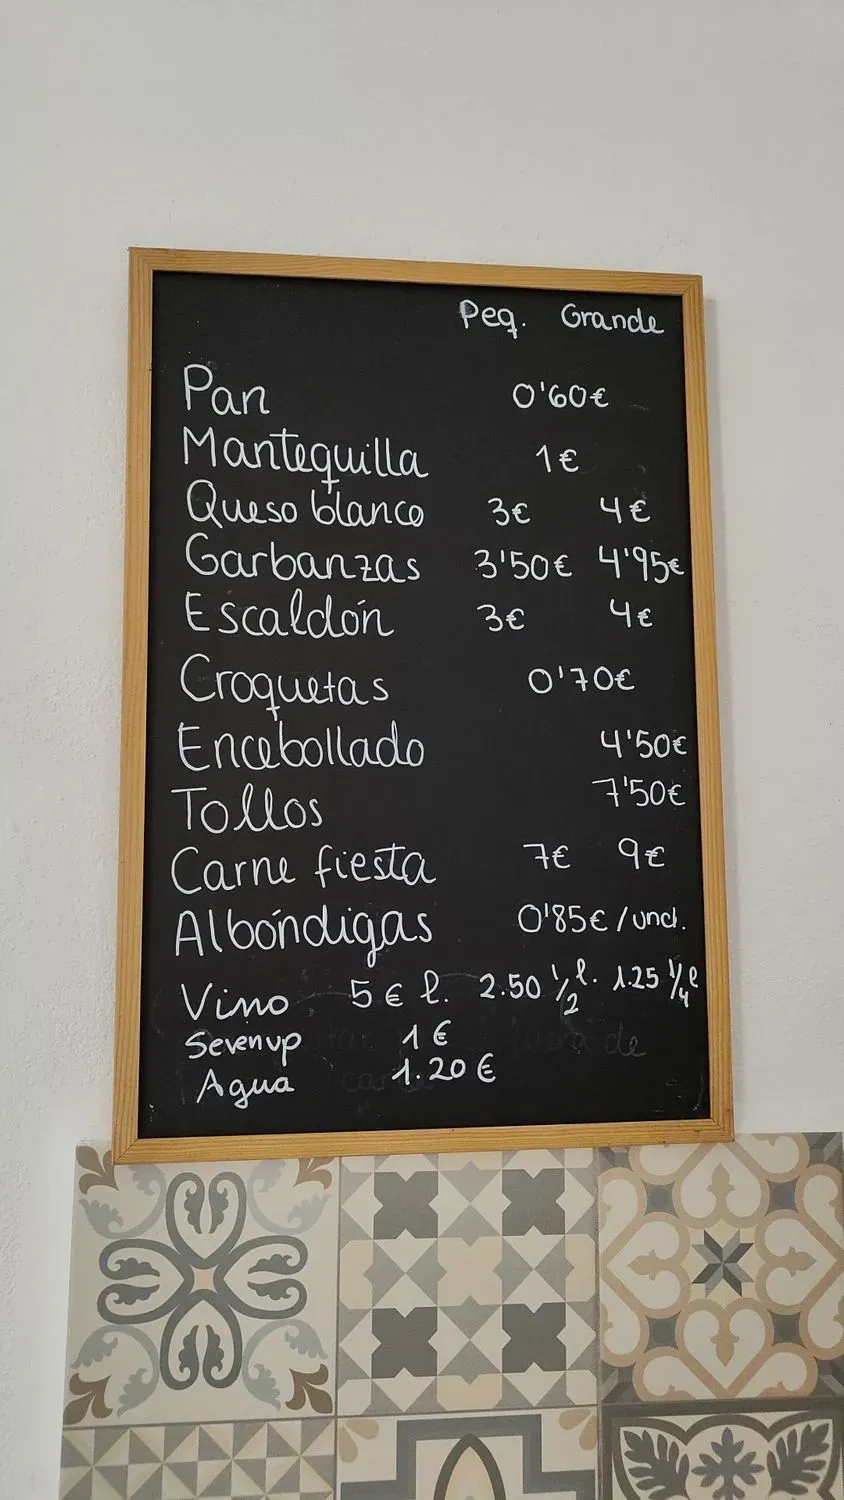 Peq. Grande
Pan 0'60€
Mantequilla 1€
Queso blanco 3€ 4€
Garbanzas 3'50€ 4'95€
Escaldón 3€ 4€
Croquetas 0'70€
Encebollado 4'50€
Tollos 7'50€
Carne fiesta 7€ 9€
Albóndigas 0'85€/und.
Vino 5€ l. 2.50 1/2 l. 1.25 1/4 l
Sevenup 1€
Agua 1.20€